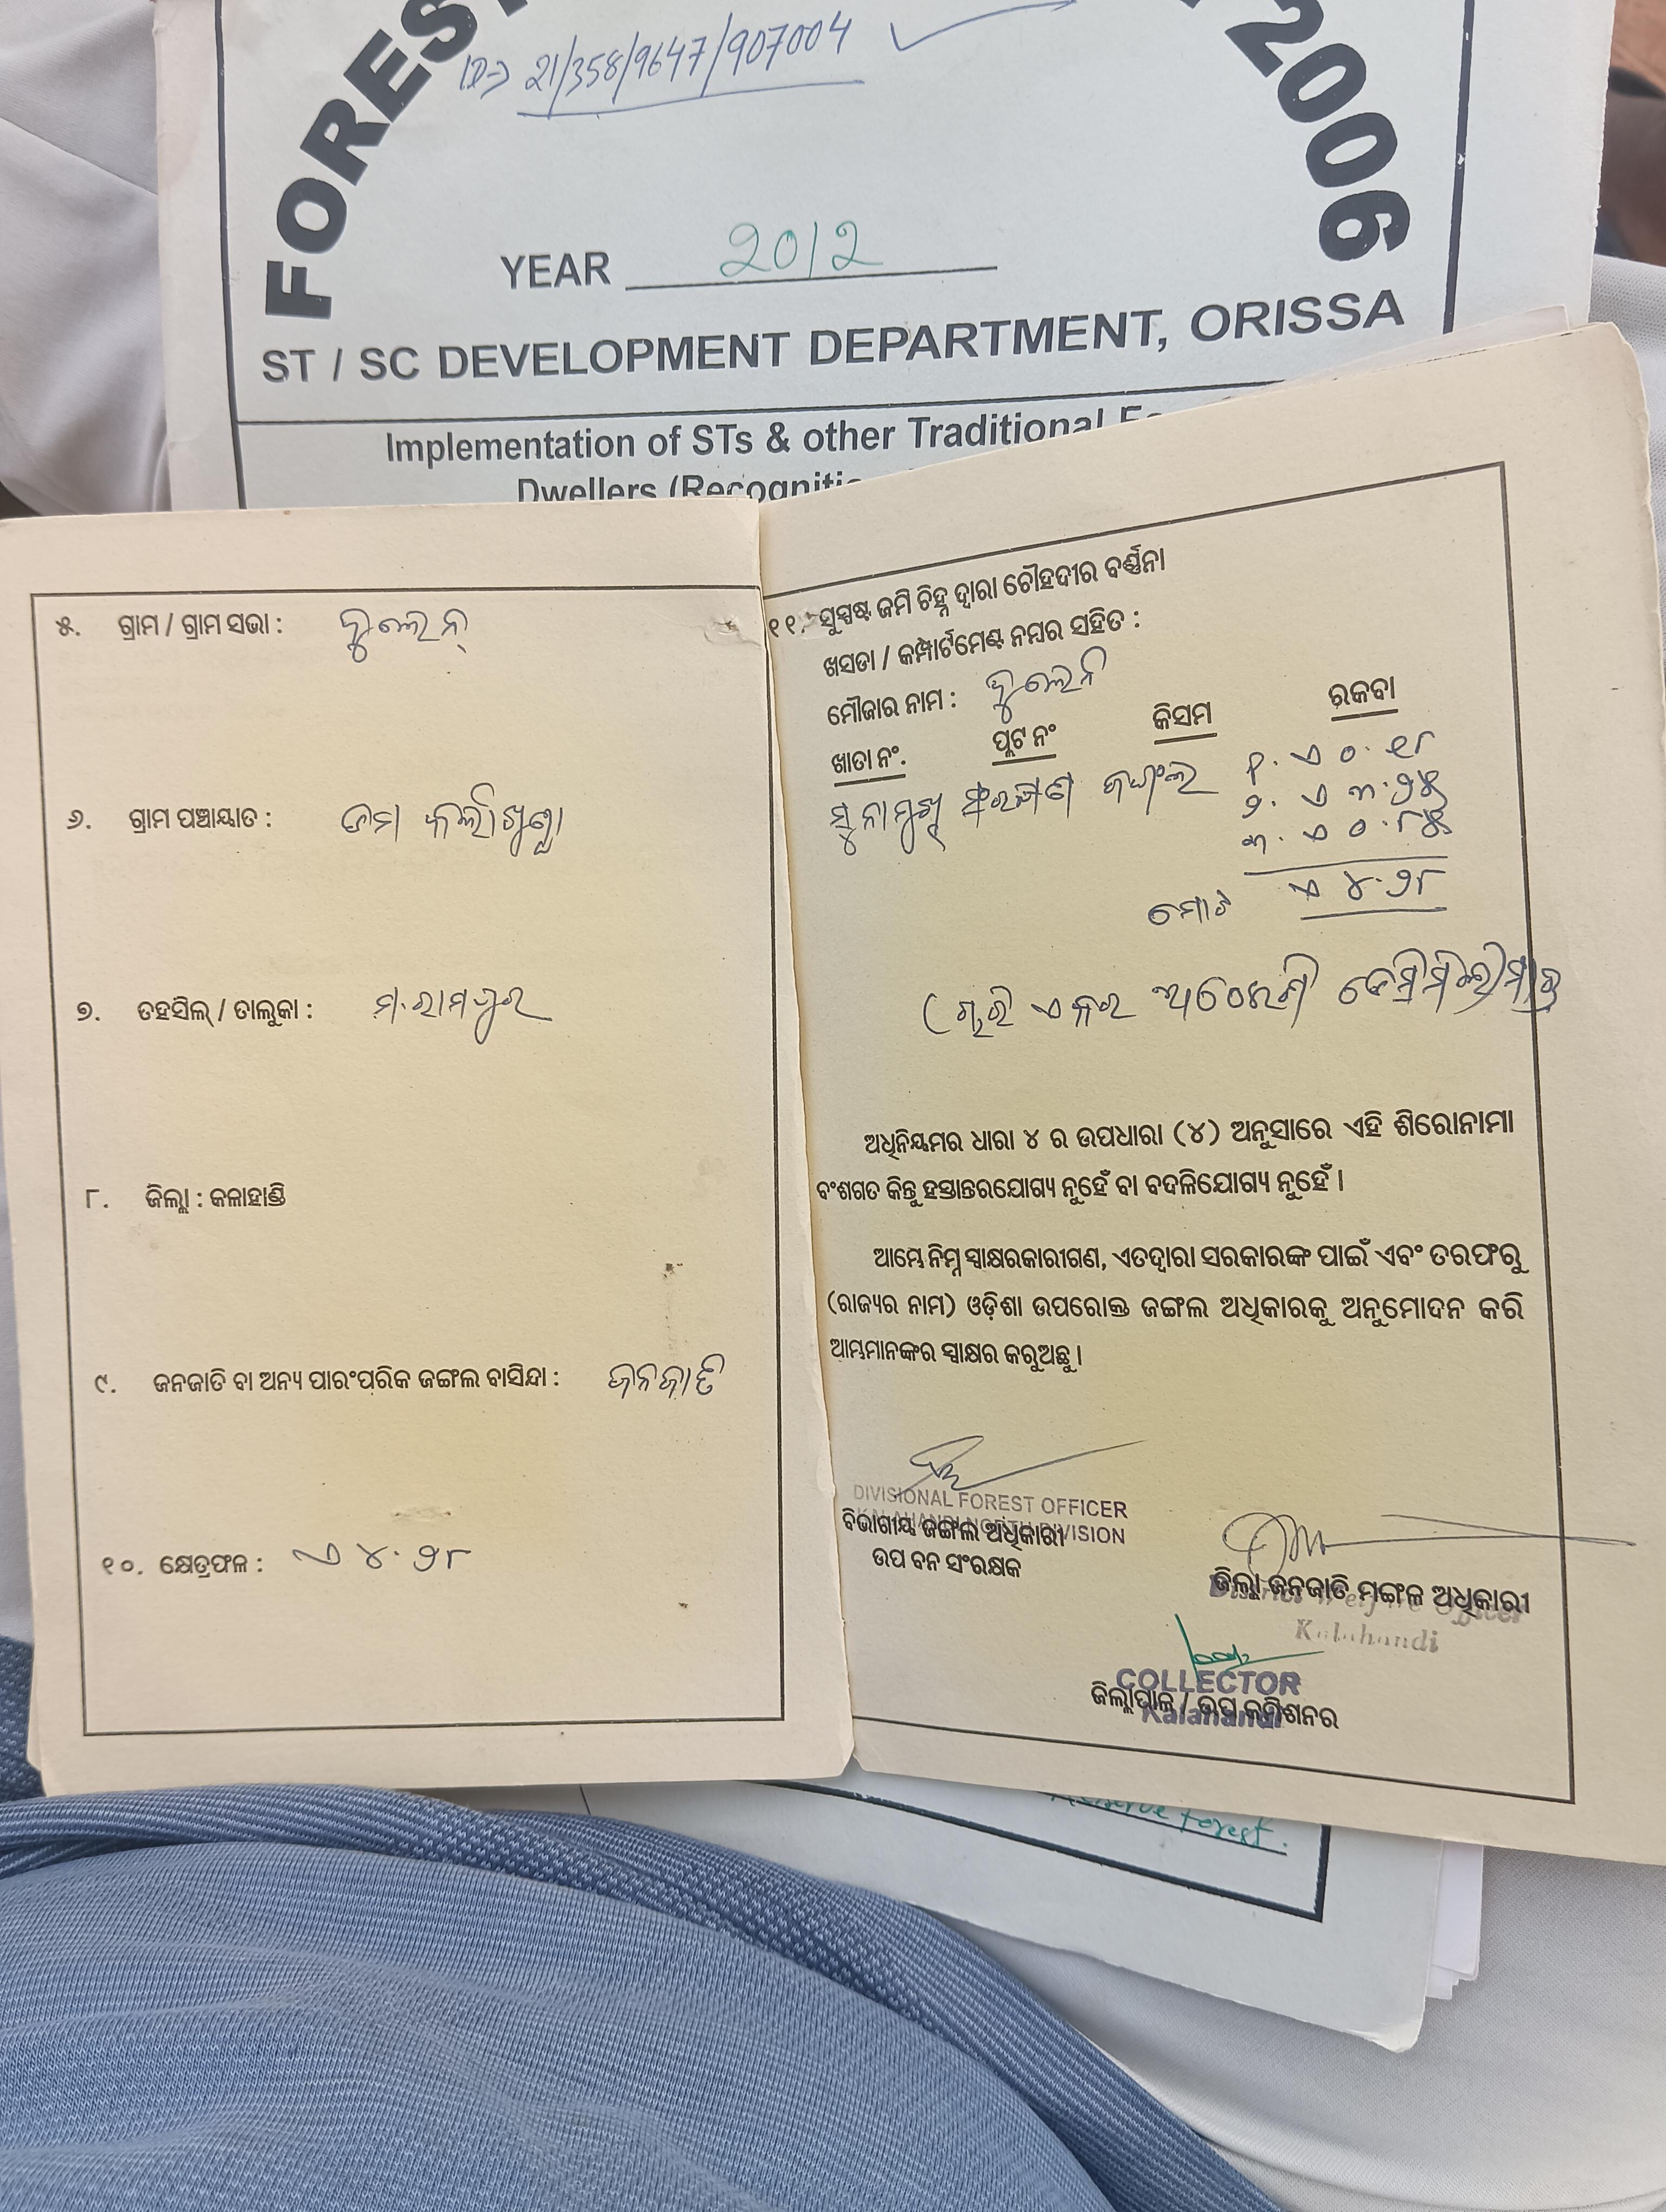 FOREST 2006
ID→ 21/358/9647/907004
YEAR 2012
ST / SC DEVELOPMENT DEPARTMENT, ORISSA
Implementation of STs & other Traditional
Dwellers
୫. ଗ୍ରାମ / ଗ୍ରାମ ସଭା :
୬. ଗ୍ରାମ ପଞ୍ଚାୟାତ :
୭. ତହସିଲ୍ / ତାଲୁକା : ମ.ରାମପୁର
୮. ଜିଲ୍ଲା : କଳାହାଣ୍ଡି
୯. ଜନଜାତି ବା ଅନ୍ୟ ପାରଂପରିକ ଜଙ୍ଗଲ ବାସିନ୍ଦା : ଜନଜାତି
୧୦. କ୍ଷେତ୍ରଫଳ : ଏ ୪.୨୮
୧୧. ସୁସ୍ପଷ୍ଟ ଜମି ଚିହ୍ନ ଦ୍ଵାରା ଚୌହଦୀର ବର୍ଣ୍ଣନା
ଖସଡା / କମ୍ପାର୍ଟମେଣ୍ଟ ନମ୍ବର ସହିତ :
ମୌଜାର ନାମ :
ଖାତା ନଂ. ପ୍ଲଟ ନଂ କିସମ ରକବା
ଜଙ୍ଗଲ ୧. ଏ ୦.୧୮
୨. ଏ ୩.୨୫
୩. ଏ ୦.୮୫
ମୋଟ ଏ ୪.୨୮
ଅଧିନିୟମର ଧାରା ୪ ର ଉପଧାରା (୪) ଅନୁସାରେ ଏହି ଶିରୋନାମା
ବଂଶଗତ କିନ୍ତୁ ହସ୍ତାନ୍ତରଯୋଗ୍ୟ ନୁହେଁ ବା ବଦଳିଯୋଗ୍ୟ ନୁହେଁ ।
ଆମ୍ଭେ ନିମ୍ନ ସ୍ୱାକ୍ଷରକାରୀଗଣ, ଏତଦ୍ୱାରା ସରକାରଙ୍କ ପାଇଁ ଏବଂ ତରଫରୁ
(ରାଜ୍ୟର ନାମ) ଓଡ଼ିଶା ଉପରୋକ୍ତ ଜଙ୍ଗଲ ଅଧିକାରକୁ ଅନୁମୋଦନ କରି
ଆମ୍ଭମାନଙ୍କର ସ୍ୱାକ୍ଷର କରୁଅଛୁ ।
DIVISIONAL FOREST OFFICER
KALAHANDI NORTH DIVISION
ବିଭାଗୀୟ ଜଙ୍ଗଲ ଅଧିକାରୀ
ଉପ ବନ ସଂରକ୍ଷକ
ଜିଲ୍ଲା ଜନଜାତି ମଙ୍ଗଳ ଅଧିକାରୀ
District Welfare Officer
Kalahandi
COLLECTOR
ଜିଲ୍ଲାପାଳ / ଉପ କମିଶନର
Kalahandi
Reserve forest.